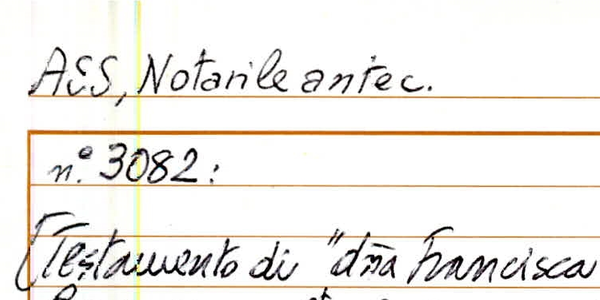 ASS, Notarile antec.
n.° 3082:
[Testamento di "dña Francisca